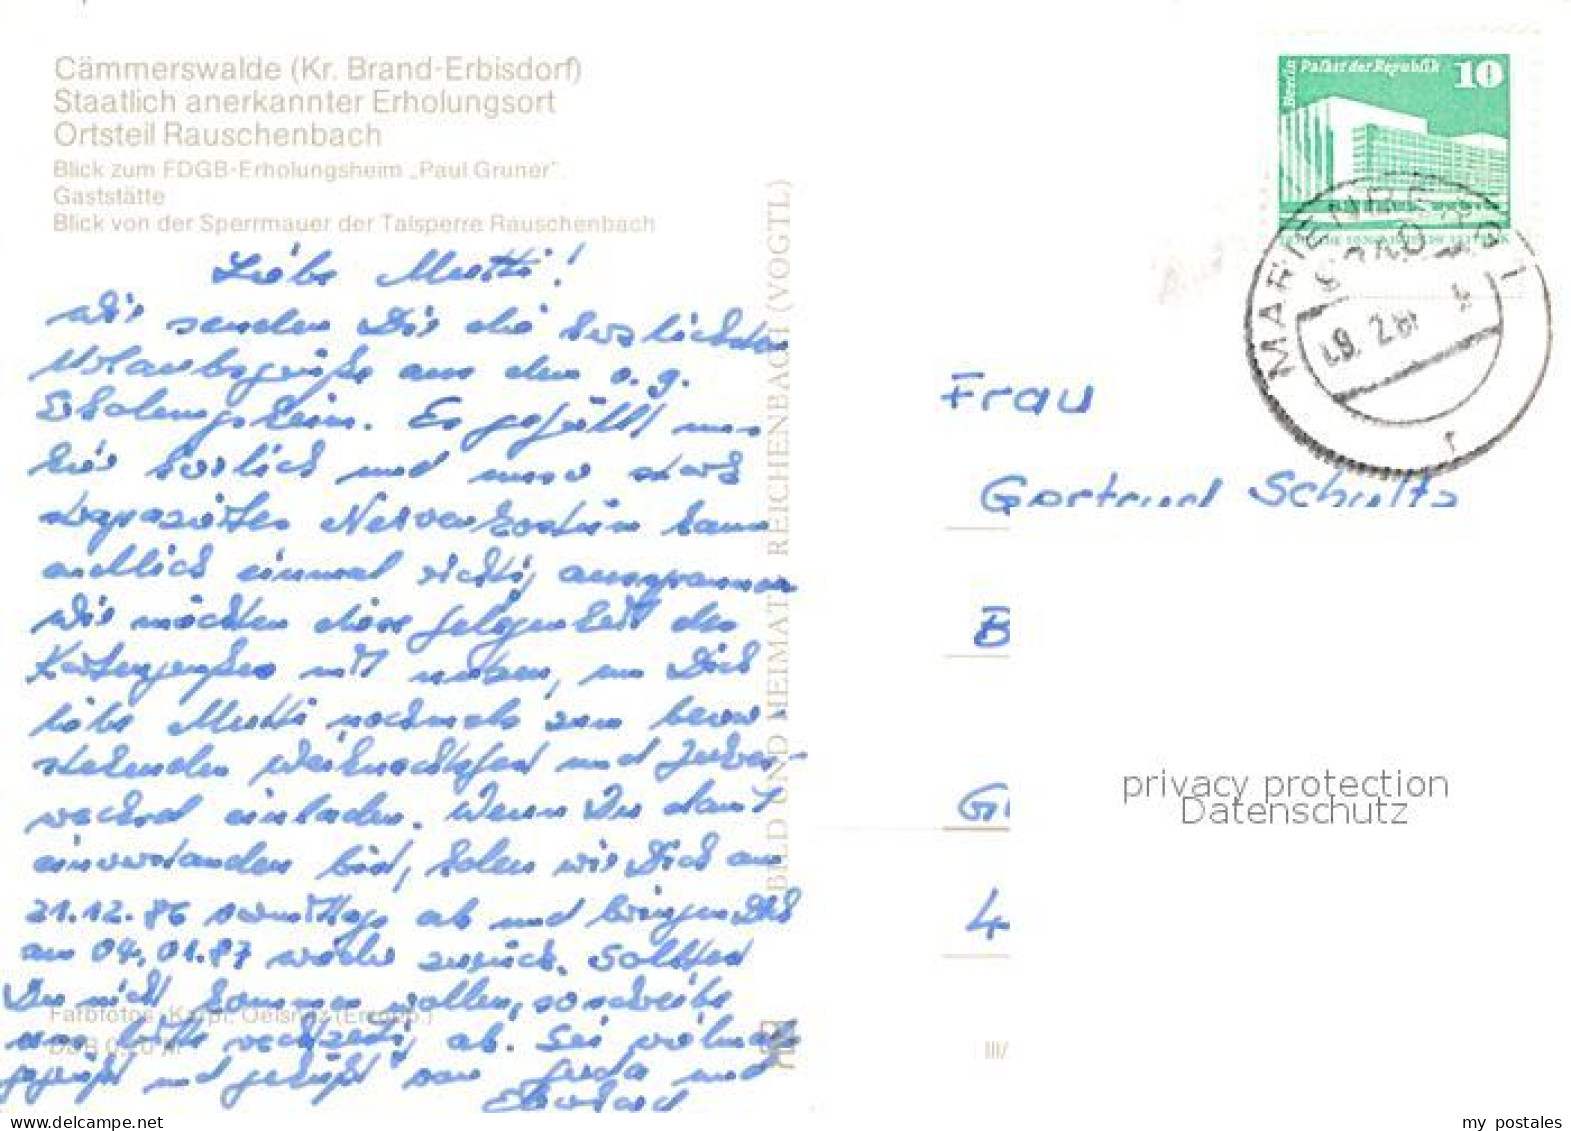 Cämmerswalde (Kr. Brand-Erbisdorf)
Staatlich anerkannter Erholungsort
Ortsteil Rauschenbach
Blick zum FDGB-Erholungsheim „Paul Gruner“.
Gaststätte
Blick von der Sperrmauer der Talsperre Rauschenbach
Liebe Mutti!
Wir senden Dir die herzlichsten
Urlaubsgrüße aus dem o. g.
Erholungsheim. Es gefällt uns
hier herrlich und unser stark
strapaziertes Nervenkostüm kann
endlich einmal richtig ausspannen
Wir möchten diese Gelegenheit des
Kartengrußes mit nutzen, um Dich
liebe Mutti nochmals zum bevor-
stehenden Weihnachtsfest und Jahres-
wechsel einladen. Wenn Du damit
einverstanden bist, holen wir Dich am
21.12.86 vormittags ab und bringen Dich
am 04.01.87 wieder zurück. Solltest
Du nicht kommen wollen, so schreibe
uns bitte rechtzeitig ab. Sei vielmals
gegrüßt und geküßt von und
Eberhard
Farbfotos: Karpf, Oelsnitz (Erzgeb.)
BILD UND HEIMAT REICHENBACH (VOGTL)
Berlin Palast der Republik 10
MARIENBERG 1
Frau
Gertrud Schultz
B
G
4
III/
privacy protection
Datenschutz
my_postales